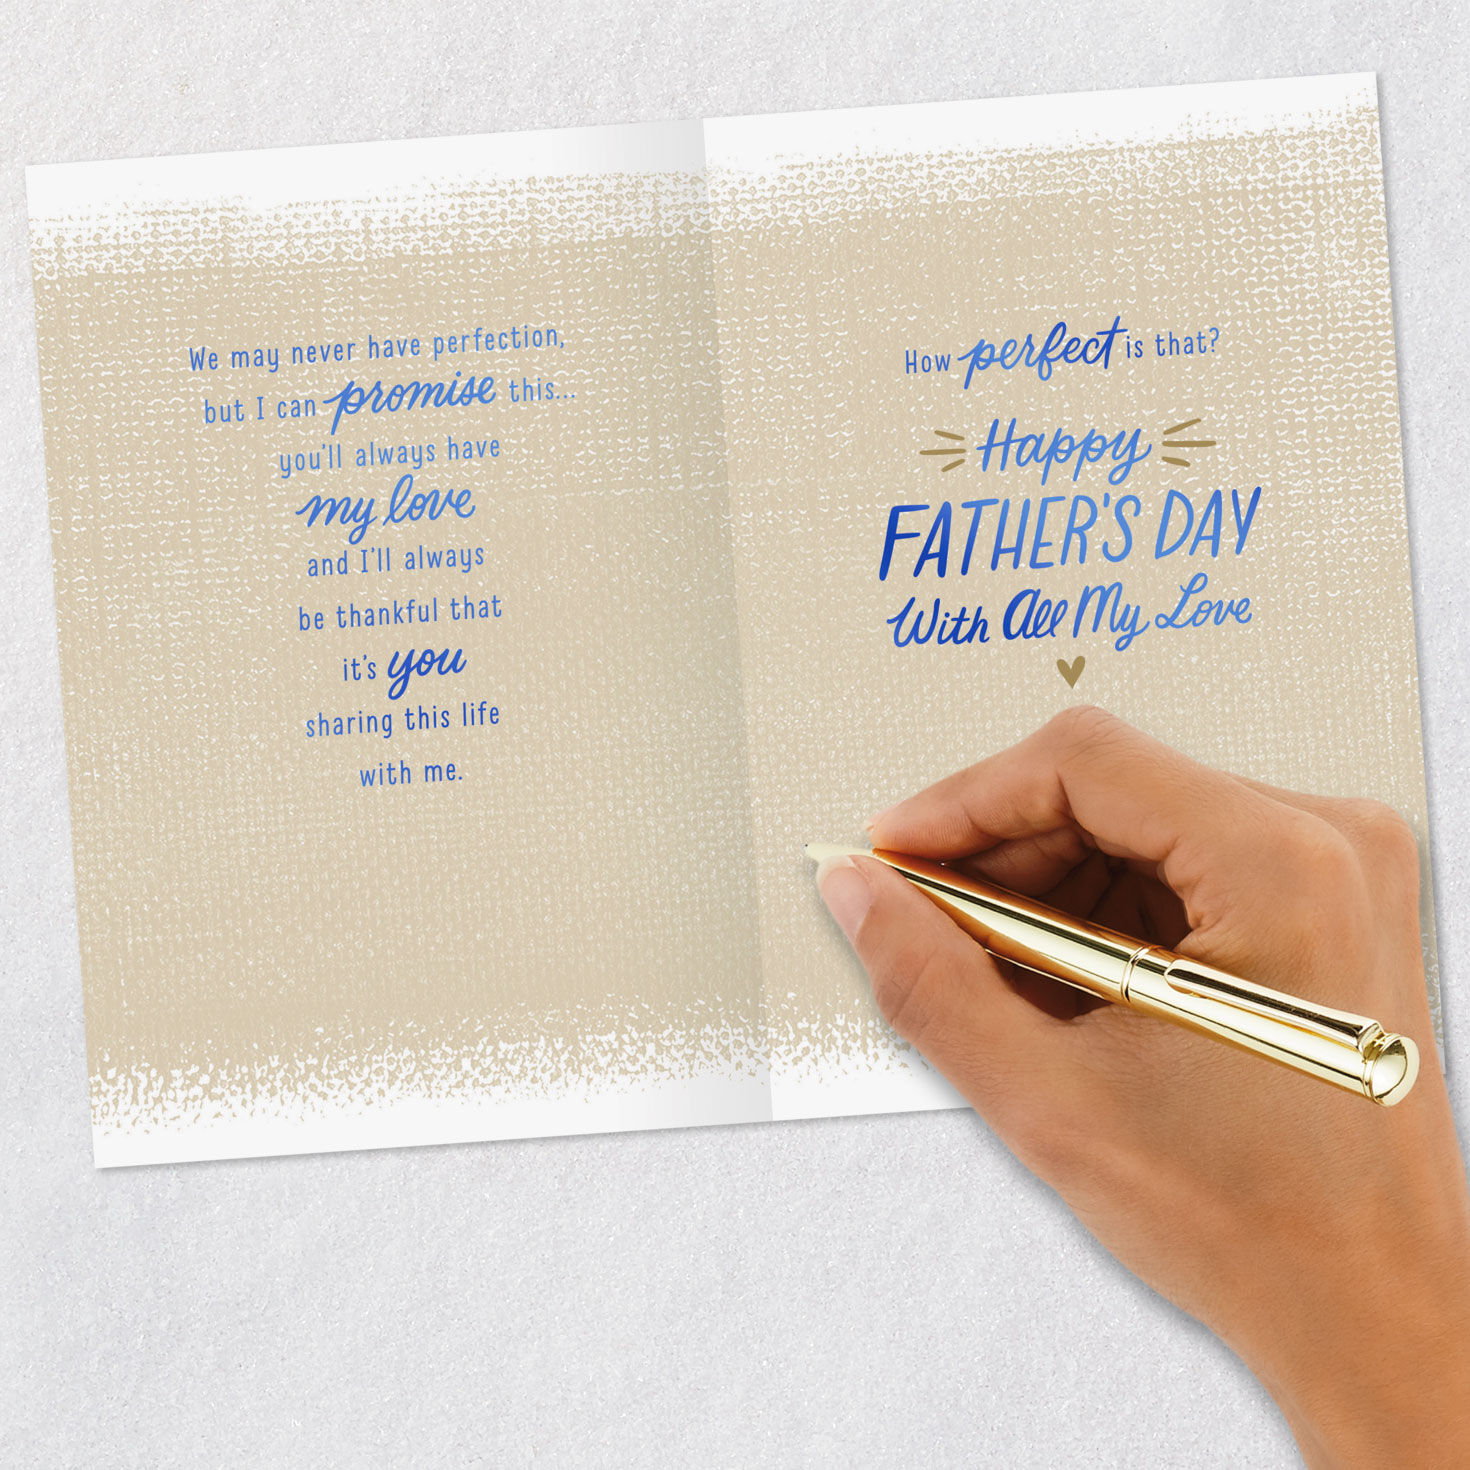 We may never have perfection,
but I can promise this...
you'll always have
my love
and I'll always
be thankful that
it's you
sharing this life
with me.
How perfect is that?
Happy
FATHER'S DAY
With All My Love